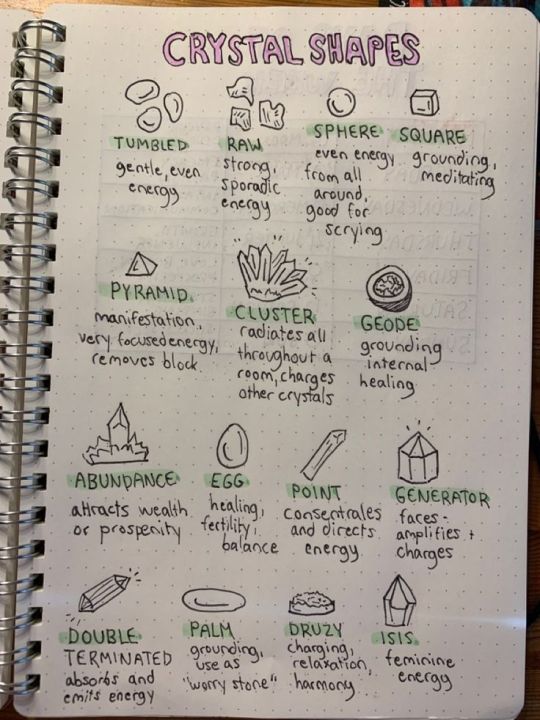 CRYSTAL SHAPES
TUMBLED
gentle, even
energy
RAW
strong,
sporadic
energy
SPHERE
even energy
from all
around,
good for
scrying
SQUARE
grounding,
meditating
PYRAMID
manifestation,
very focused energy,
removes block
CLUSTER
radiates all
throughout a
room, charges
other crystals
GEODE
grounding
internal
healing
ABUNDANCE
attracts wealth
or prosperity
EGG
healing,
fertility,
balance
POINT
consentrates
and directs
energy
GENERATOR
faces -
amplifies +
charges
DOUBLE
TERMINATED
absorbs and
emits energy
PALM
grounding,
use as
"worry stone"
DRUZY
charging,
relaxation,
harmony
ISIS
feminine
energy